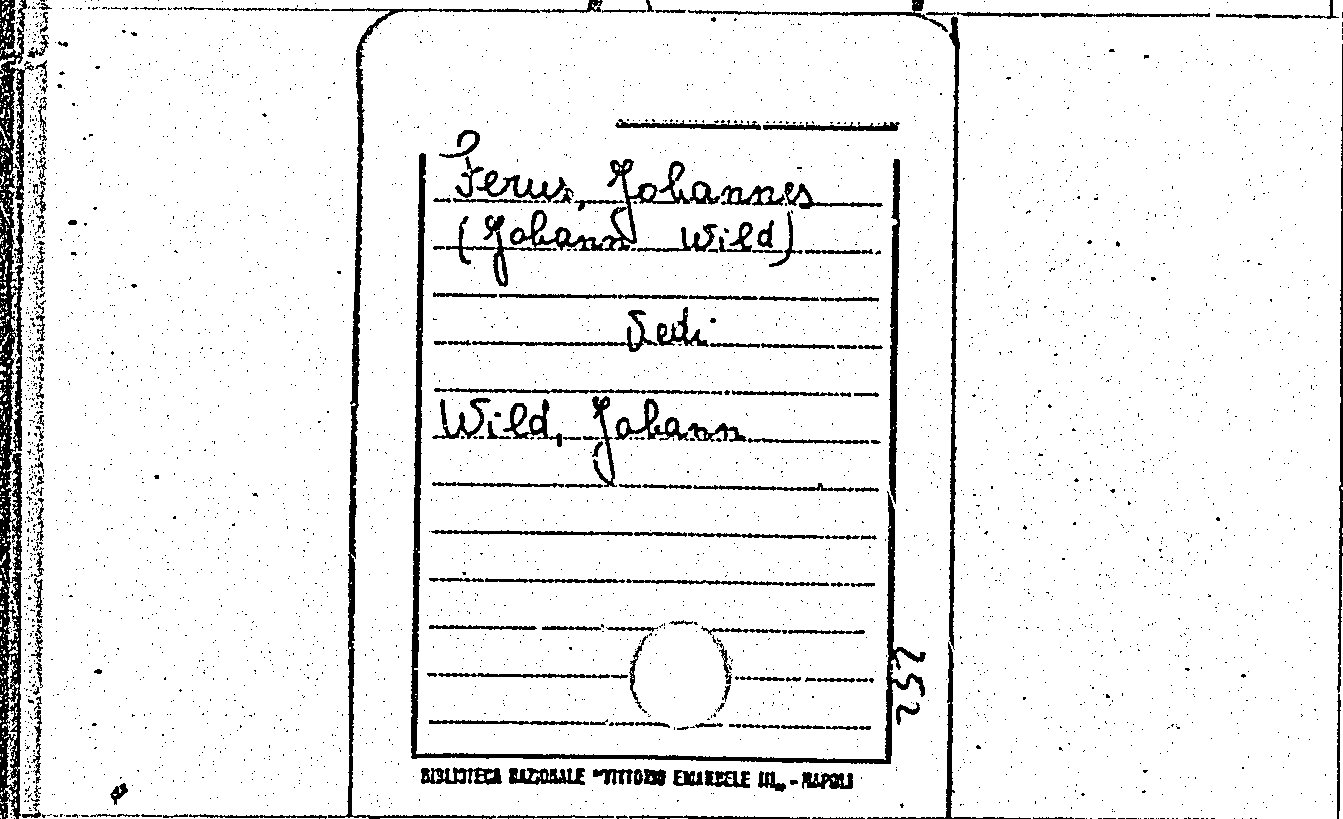 Ferus, Johannes
(Johann Wild)
Vedi
Wild, Johann
252
BIBLIOTECA NAZIONALE "VITTORIO EMANUELE III„ - NAPOLI